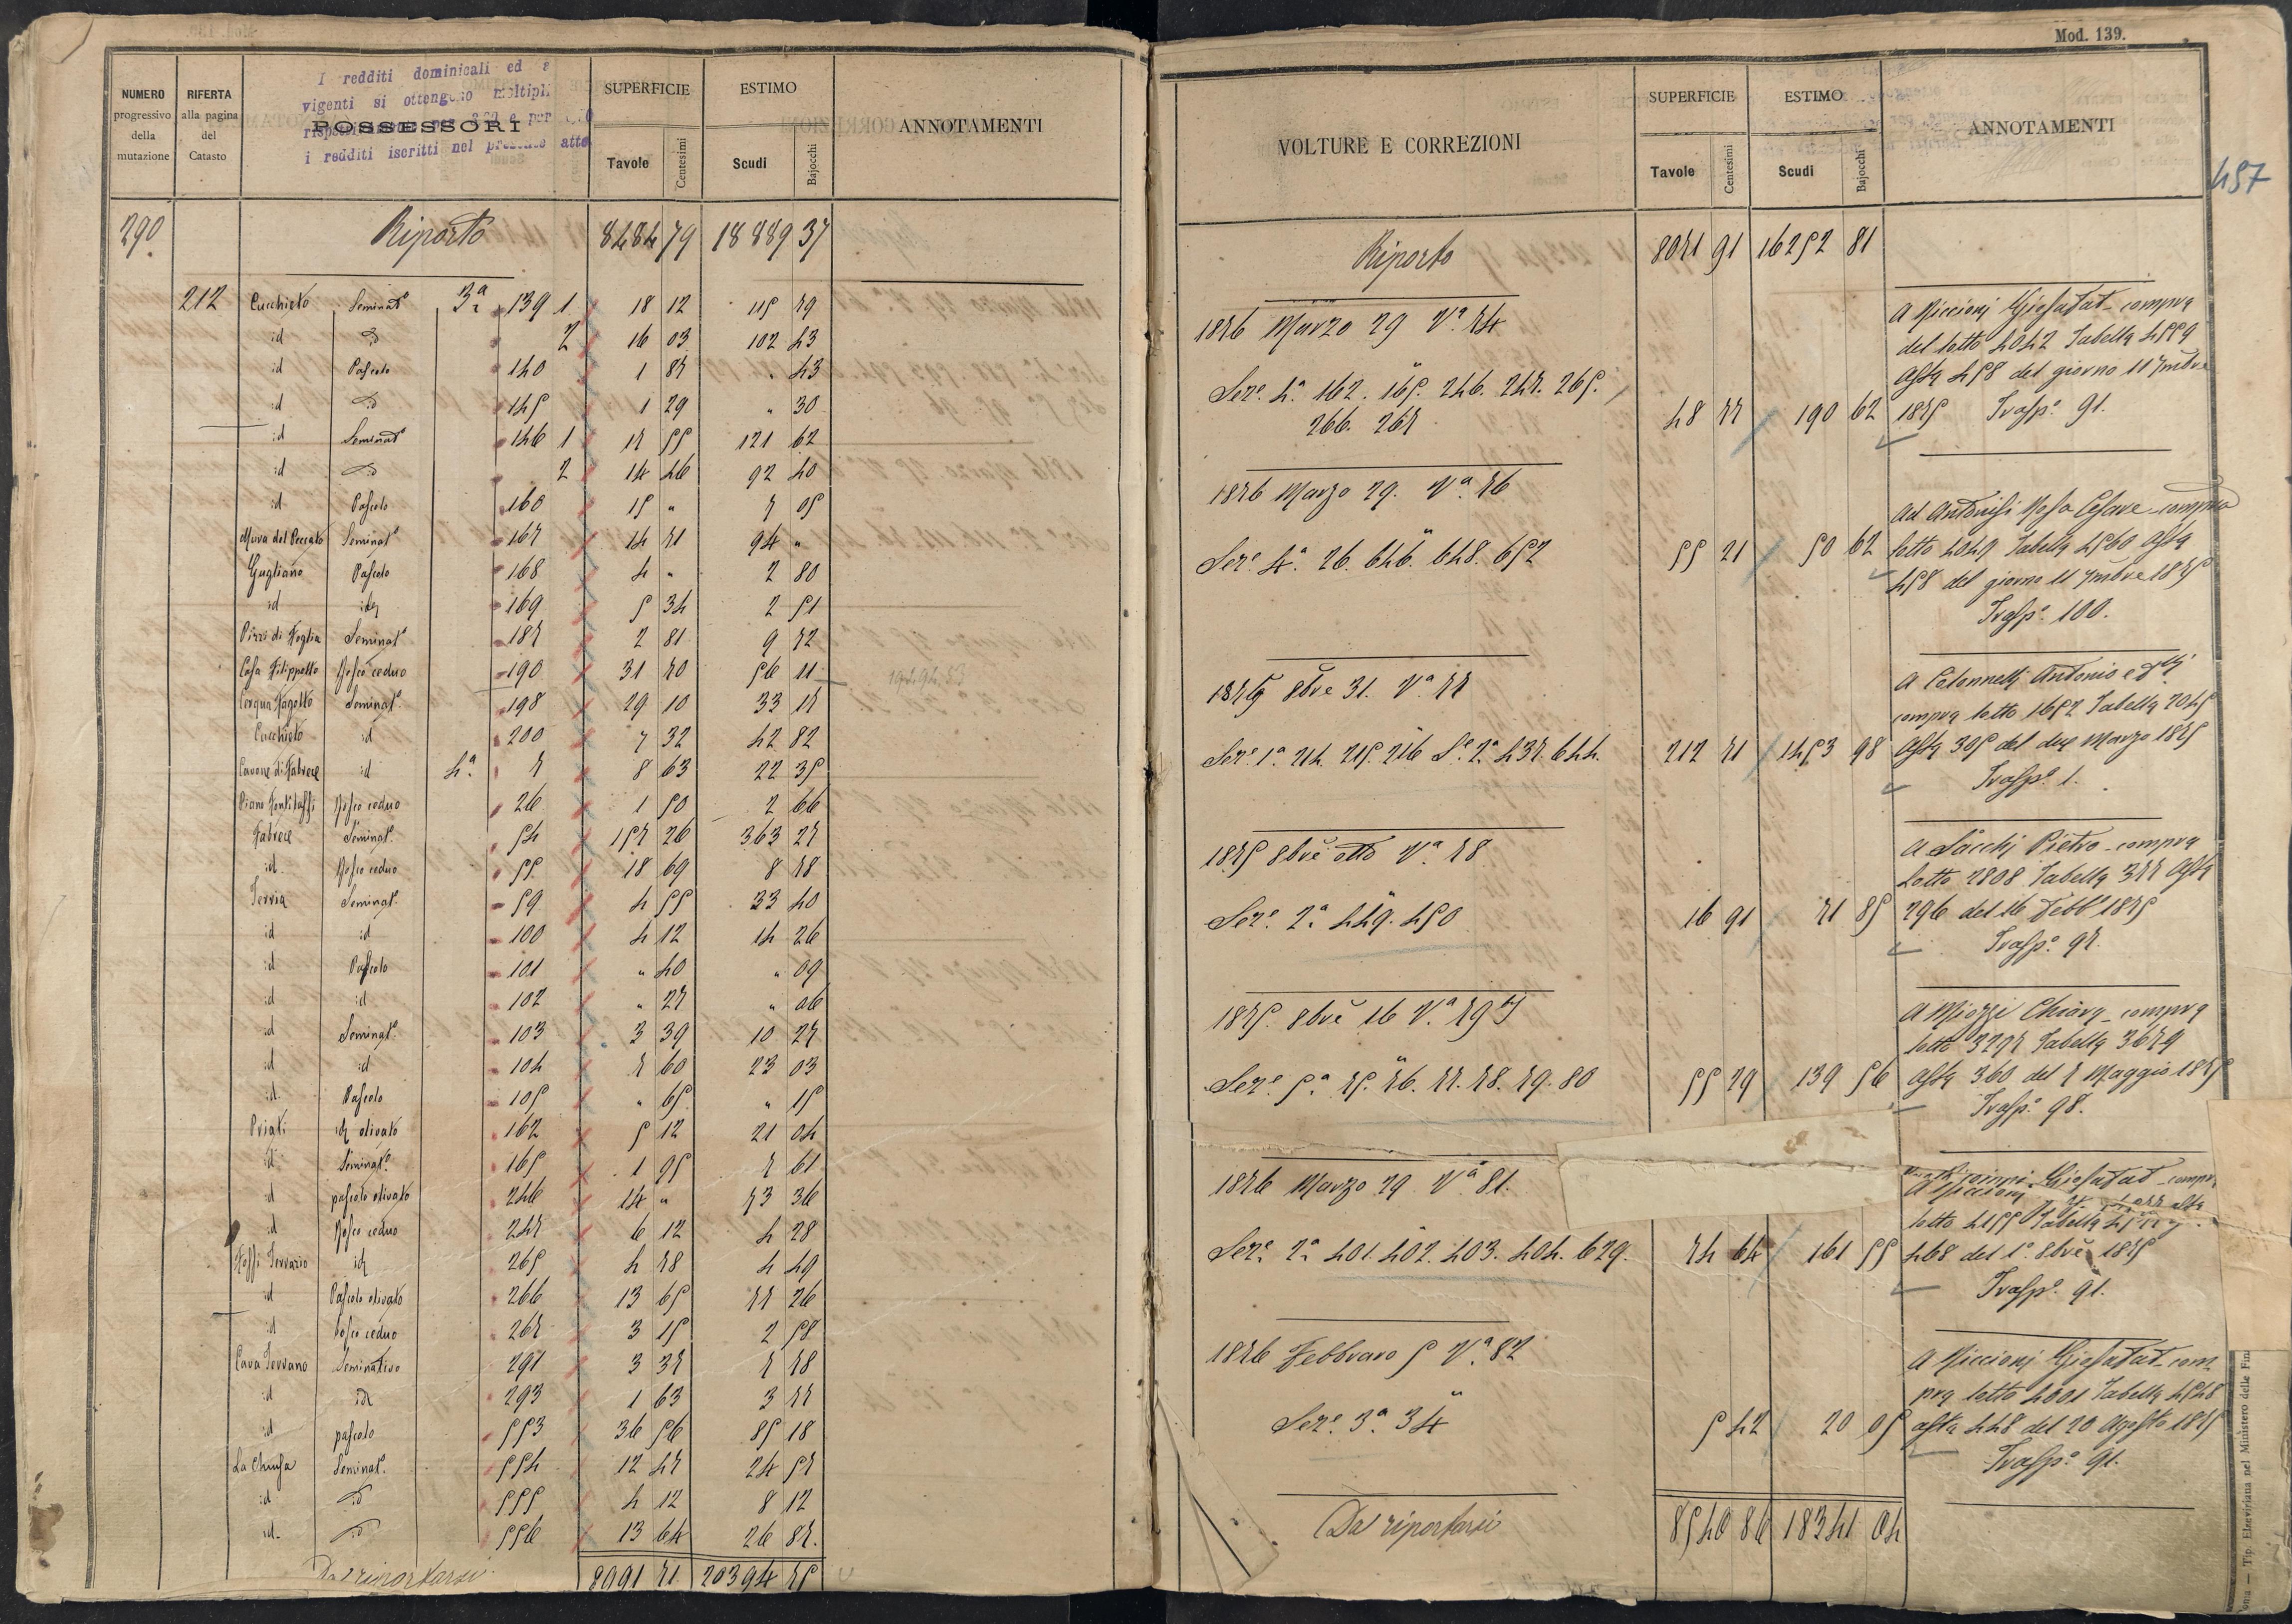 Mod. 139.
457
NUMERO progressivo della mutazione
RIFERTA alla pagina del Catasto
I redditi dominicali ed
vigenti si ottengono moltipl
POSSESSORI
i redditi iscritti nel presente atto
SUPERFICIE
Tavole Centesimi
ESTIMO
Scudi Bajocchi
ANNOTAMENTI
290 Riporto 8484 79 18889 37
212 Cucchieto Seminat° 3ª 139 1 18 12 115 79
id id 2 16 03 102 43
id Pascolo 140 1 87 " 43
id id 145 1 29 " 30
id Seminat° 146 1 17 55 121 62
id id 2 14 46 92 40
id Pascolo 160 15 " 7 05
Mura del Peccato Seminat° 167 14 71 94 "
Gugliano Pascolo 168 4 " 2 80
id id 169 5 34 2 51
Pizzo di Foglia Seminat° 187 2 81 9 72
Casa Filippetto Bosco ceduo 190 31 70 56 11 19494.53
Cerqua Fagotto Seminat° 198 29 10 33 17
Cucchieto id 200 7 32 42 82
Cavone di Fabrece id 4ª 7 8 63 22 35
Piano Fontitassi Bosco ceduo 26 1 50 2 66
Fabrece Seminat° 54 157 26 363 27
id Bosco ceduo 55 18 69 8 78
Terria Seminat° 59 4 55 33 40
id id 100 4 12 14 26
id Pascolo 101 " 40 " 09
id id 102 " 27 " 06
id Seminat° 103 3 39 10 27
id id 104 7 60 23 03
id Pascolo 105 " 65 " 15
Priati id olivato 162 5 12 21 04
id Seminat° 165 1 95 7 61
id pascolo olivato 246 14 " 73 36
id Bosco ceduo 247 6 12 4 28
Fossi Terrario id 265 4 78 4 49
id Pascolo olivato 266 13 65 77 26
id bosco ceduo 267 3 15 2 58
Cava Terrano Seminativo 291 3 37 7 78
id id 293 1 63 3 77
id pascolo 553 36 56 85 18
La Chiusa Seminat° 554 12 47 24 57
id id 555 4 12 8 12
id id 556 13 64 26 87
Da riportarsi 8091 71 20394 75
VOLTURE E CORREZIONI
SUPERFICIE
Tavole Centesimi
ESTIMO
Scudi Bajocchi
ANNOTAMENTI
Riporto 8071 91 16252 81
1876 Marzo 29 Vª 74
Sez.e 4ª 162. 165. 246. 247. 265.
266. 267 48 77 190 62
A Piccioni Giosafat compra
del lotto 4042 Tabella 4559
Asta 458 del giorno 11 7mbre
1875 Trasp° 91.
1876 Marzo 29. Vª 76
Sez.e 4ª 26. 646. 648. 652 55 21 50 62
Ad Antonisi Rosa Cesare compra
lotto 4049 Tabella 4560 Asta
458 del giorno 11 7mbre 1875
Trasp° 100.
1875 8bre 31. Vª 77
Sez.e 1ª 214. 215. 216 S.e 2ª 437. 644. 212 71 1453 98
A Colonnelli Antonio e
compra lotto 1652 Tabella 2045
Asta 305 del due Marzo 1875
Trasp° 1.
1875 8bre otto Vª 78
Sez.e 2ª 449. 450 16 91 71 85
A Sacchi Pietro compra
Lotto 2808 Tabella 377 Asta
296 del 16 Febb° 1875
Trasp° 97.
1875. 8bre 16 Vª 79
Sez.e 5ª 75. 76. 77. 78. 79. 80 55 29 139 56
A Miozzi Chiara compra
lotto 3297 Tabella 3679
Asta 360 del 7 Maggio 1875
Trasp° 98.
1876 Marzo 29 Vª 81.
Sez.e 2ª 401. 402. 403. 404. 629. 74 64 161 55
A Piccioni Giosafat compra
lotto 4155 Tabella
468 del 1° 8bre 1875
Trasp° 91.
1876 Febbraro 5 Vª 82
Sez.e 3ª 34 5 42 20 05
A Piccioni Giosafat com
pra lotto 4001 Tabella 4548
asta 448 del 20 Agosto 1875
Trasp° 91.
Da riportarsi 8540 86 18341 04
Tip. Elzeviriana nel Ministero delle Fin